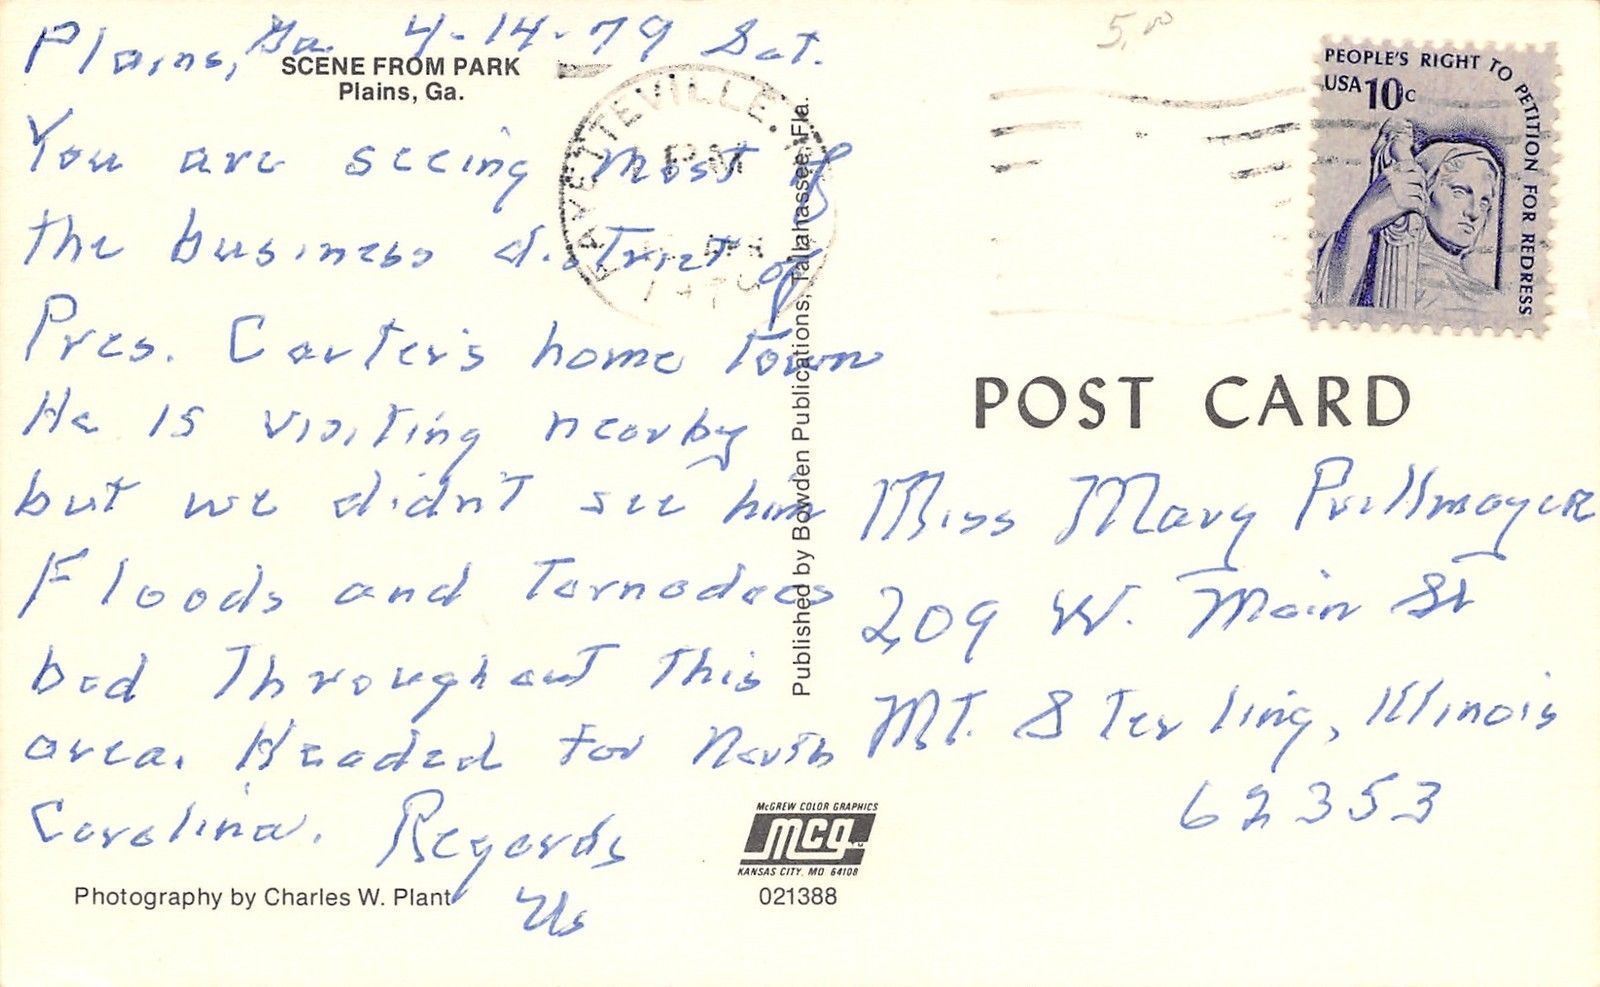 Plains, Ga. 4-14-79 Sat.
SCENE FROM PARK
Plains, Ga.
You are seeing most of
the business district of
Pres. Carter's home town
He is visiting nearby
but we didn't see him
Floods and Tornadoes
bad Throughout This
area. Headed for North
Carolina. Regards
Us
Photography by Charles W. Plant
FAYETTEVILLE,
PM
APR
1979
Published by Bowden Publications, Tallahassee, Fla.
McGREW COLOR GRAPHICS
mcg
KANSAS CITY, MO 64108
021388
5.00
PEOPLE'S RIGHT TO PETITION FOR REDRESS
USA 10c
POST CARD
Miss Mary
209 W. Main St
Mt. Sterling, Illinois
62353